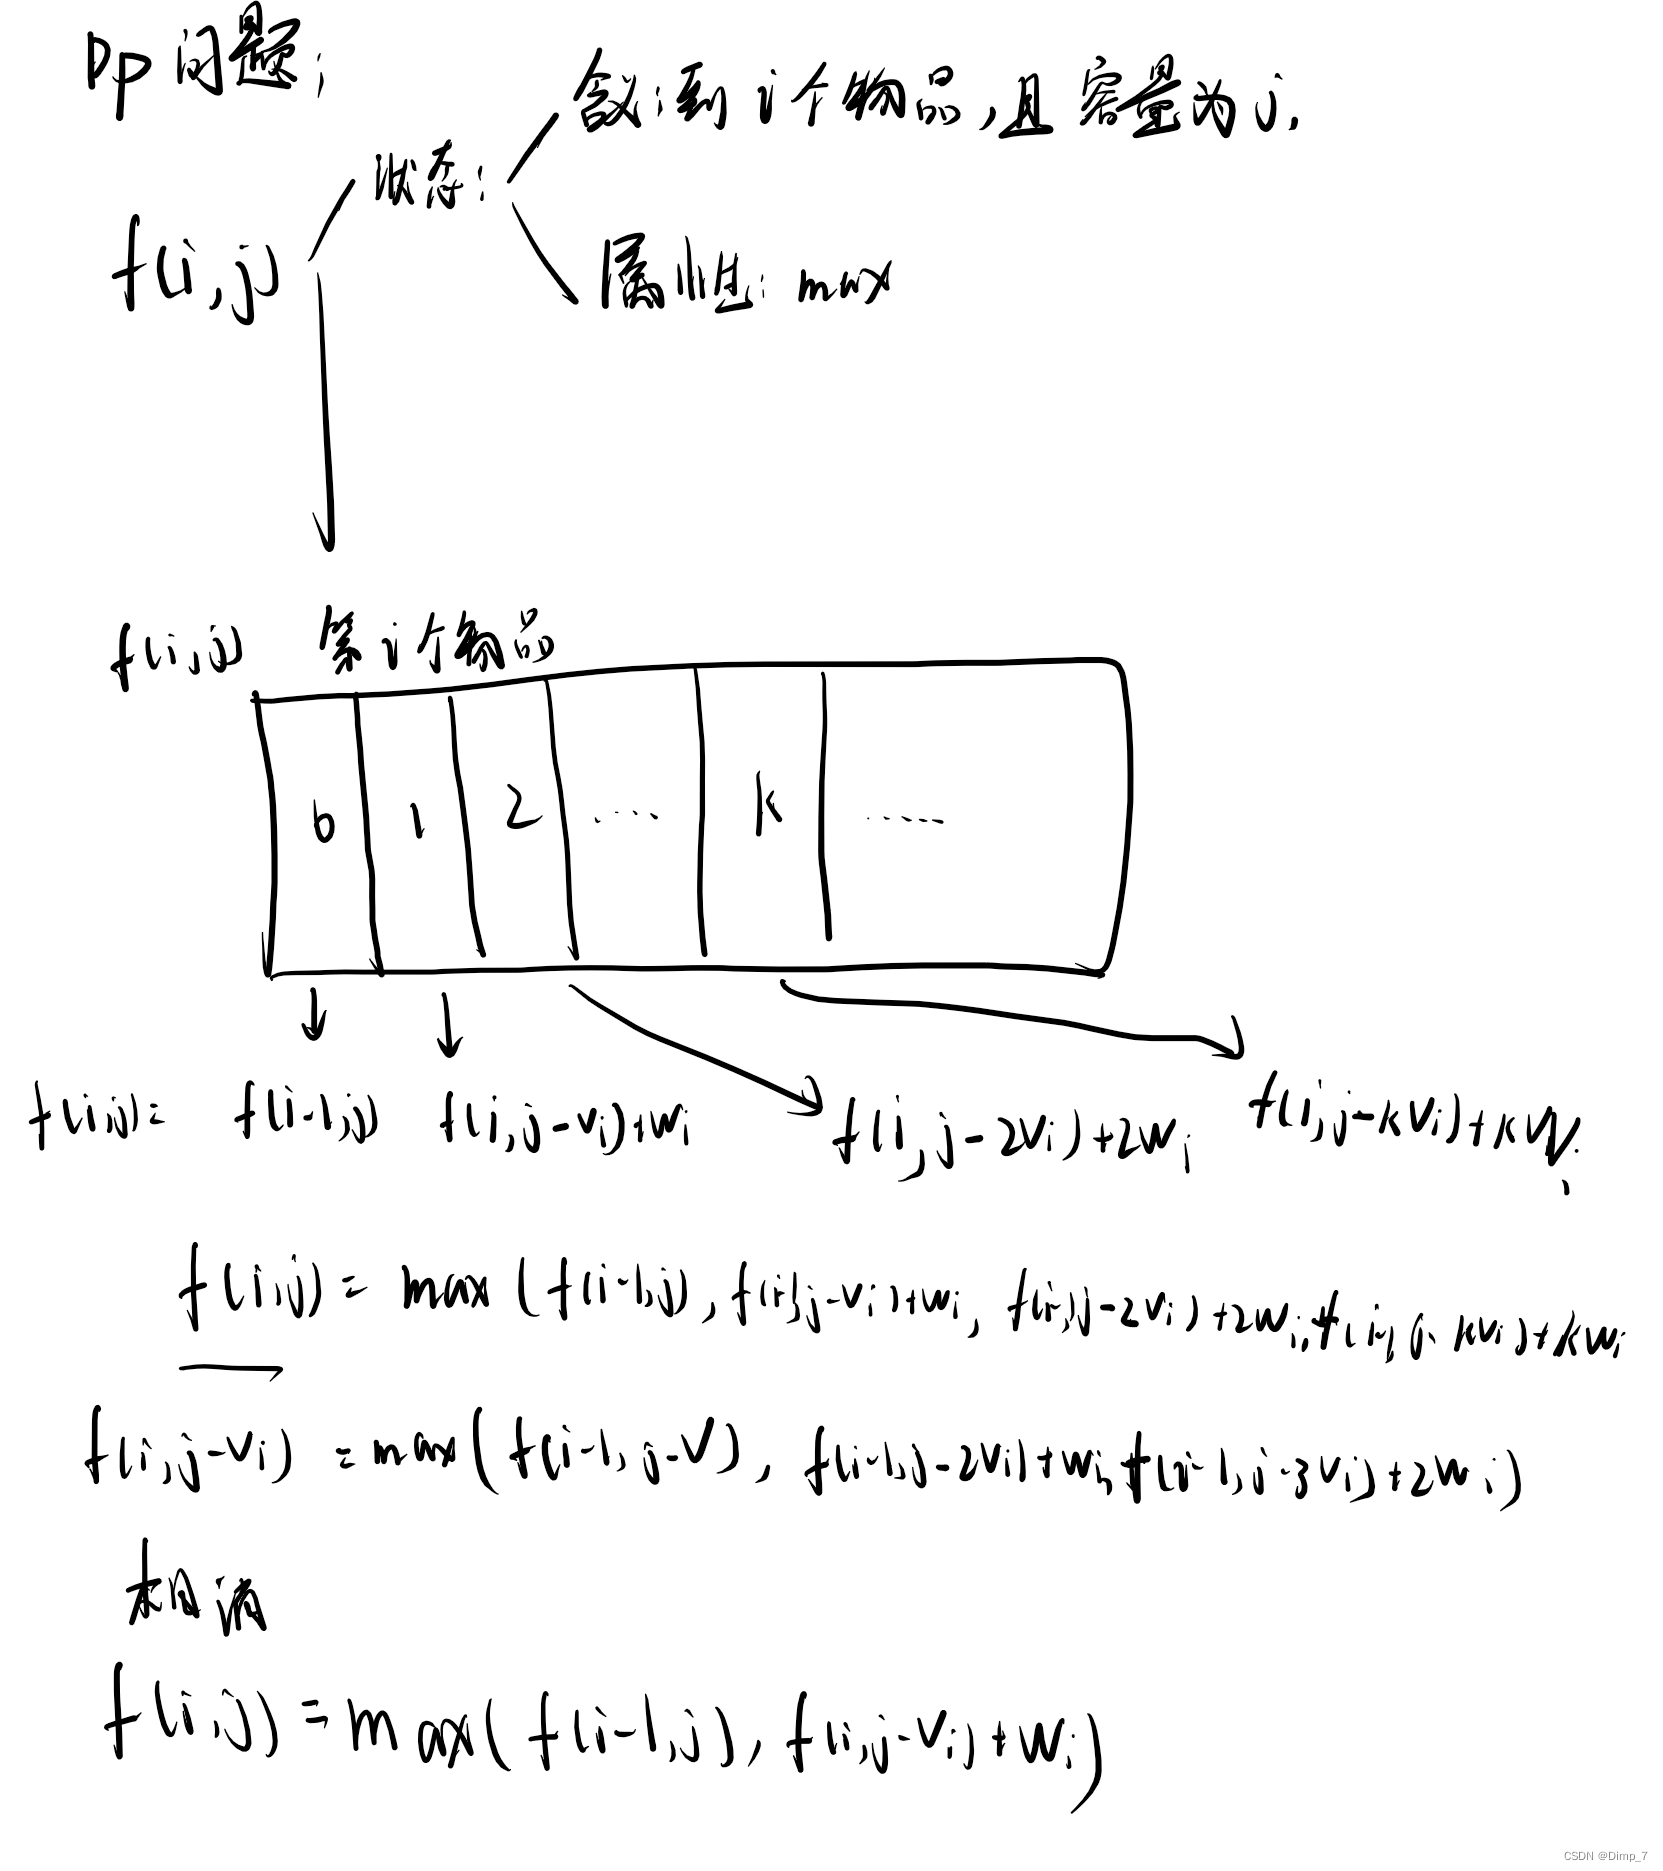 Dp问题:
含义:到i个物品,且容量为j.
状态:
f(i,j)
属性: max
f(i,j) 第i个物品
0 1 2 ..... k ......
f(i,j)= f(i-1,j) f(i,j-vi)+wi f(i,j-2vi)+2wi f(i,j-kvi)+kwi
f(i,j) = max (f(i-1,j), f(i-1,j-vi)+wi, f(i-1,j-2vi)+2wi, f(i-1,j-kvi)+kwi
f(i,j-vi) = max(f(i-1,j-v), f(i-1,j-2vi)+wi, f(i-1,j-3vi)+2wi)
相消
f(i,j) = max(f(i-1,j), f(i,j-vi)+wi)
CSDN @Dimp_7